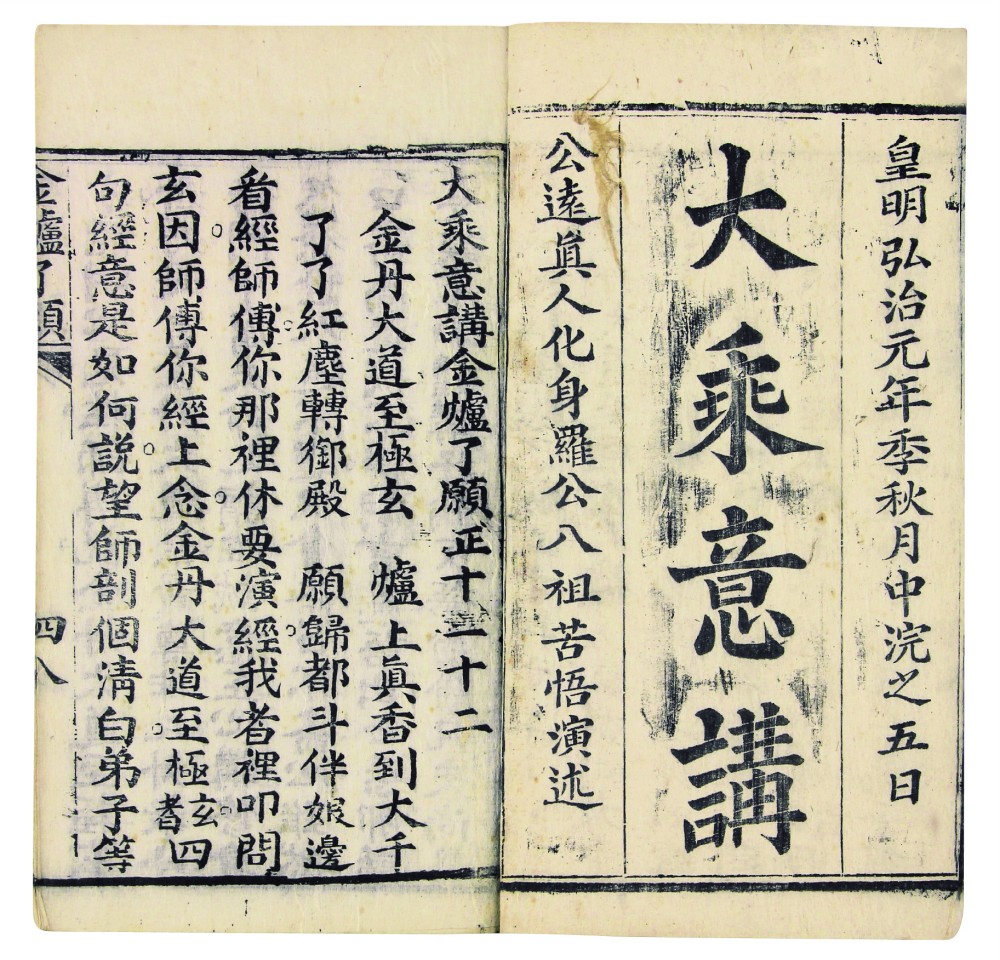 皇明弘治元年季秋月中浣之五日
大乘意講
公遠眞人化身羅公八祖苦悟演述
大乘意講金爐了願正十二十二
金丹大道至極玄　爐上眞香到大千
了了紅塵轉御殿　願歸都斗伴娘邊
看經師傅你那裡休要演經我者裡叩問
玄因師傅你經上念金丹大道至極玄者四
句經意是如何説望師剖個清白弟子等
金爐了願
四八